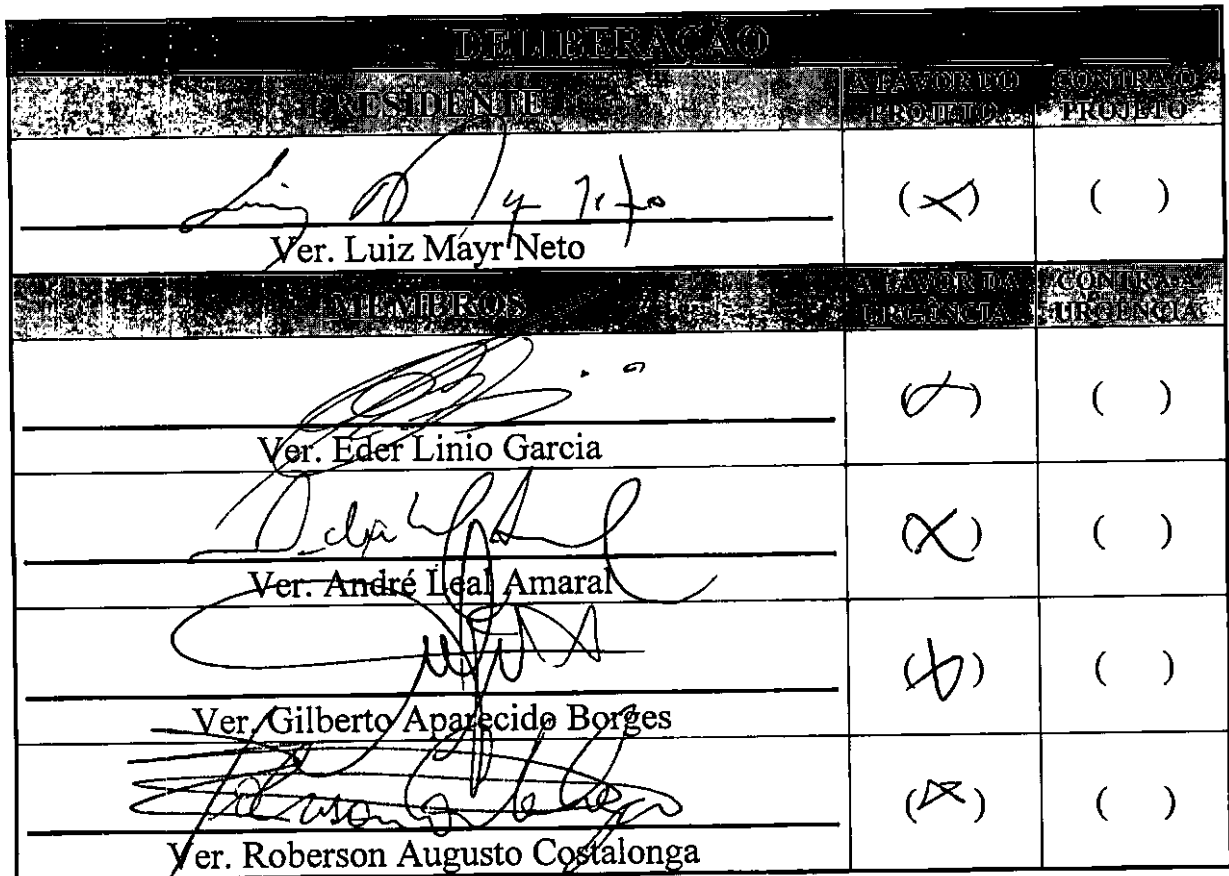 DELIBERAÇÃO
PRESIDENTE A FAVOR DO PROJETO CONTRA O PROJETO
(X) ( )
Ver. Luiz Mayr Neto
MEMBROS A FAVOR DA URGÊNCIA CONTRA A URGÊNCIA
(X) ( )
Ver. Eder Linio Garcia
(X) ( )
Ver. André Leal Amaral
(X) ( )
Ver. Gilberto Aparecido Borges
(X) ( )
Ver. Roberson Augusto Costalonga